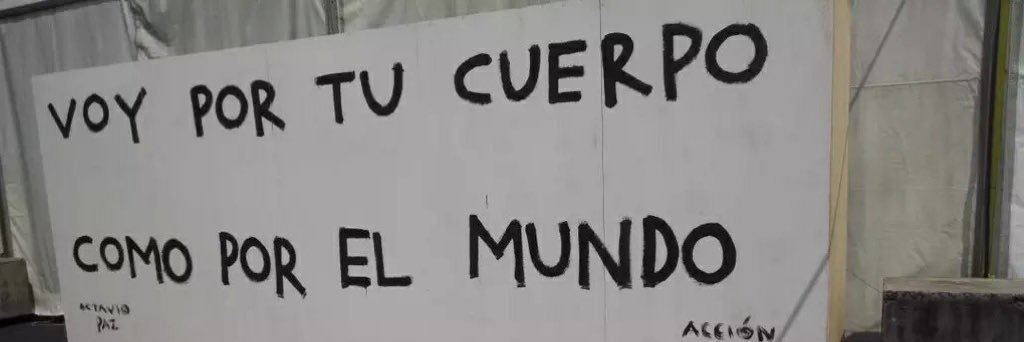 VOY POR TU CUERPO
COMO POR EL MUNDO
OCTAVIO
PAZ
ACCIÓN